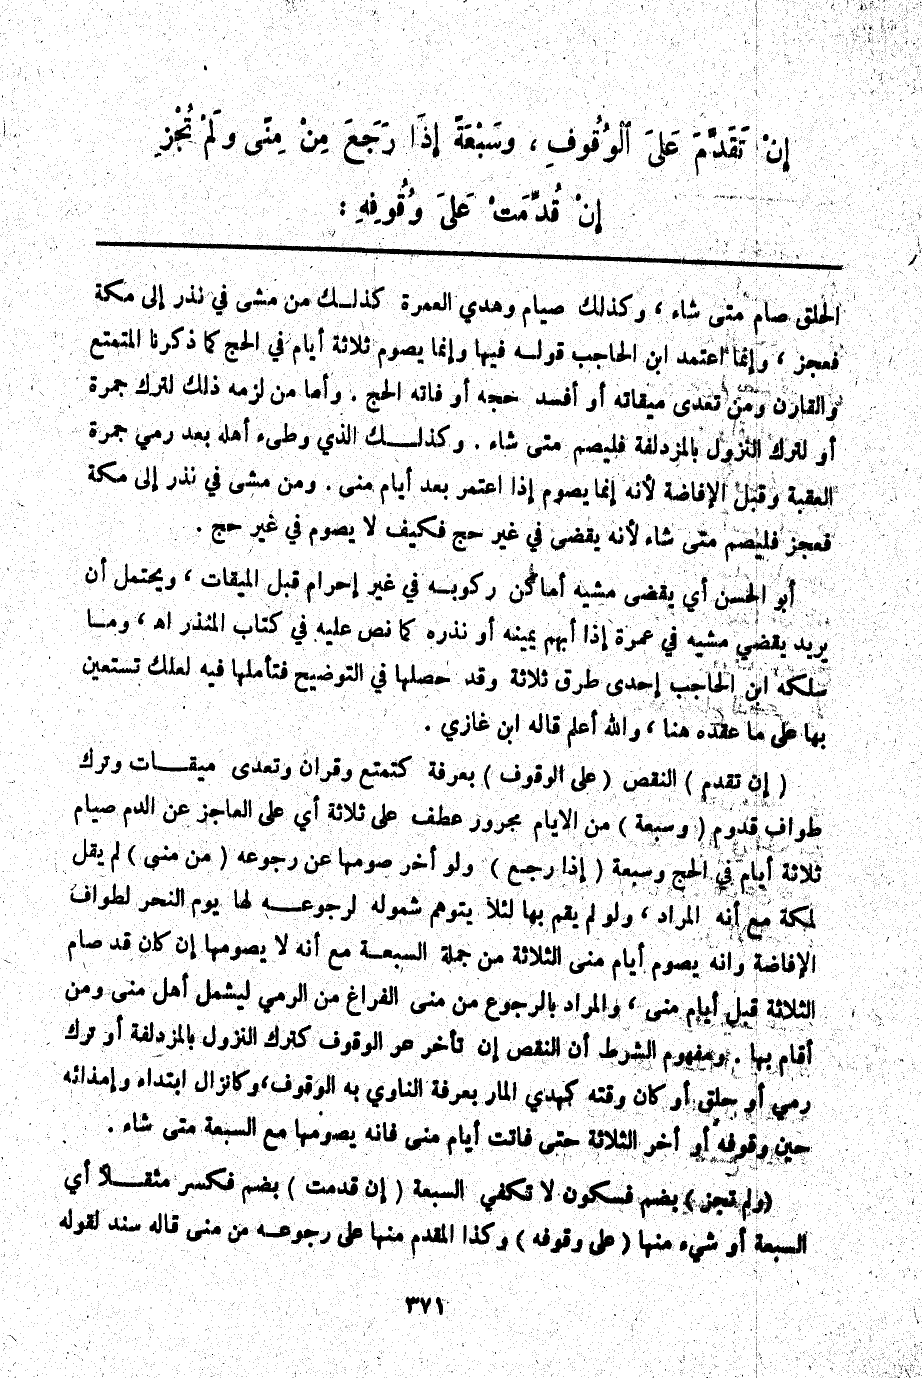 إِنْ تَقَدَّمَ عَلَى ٱلْوُقُوفِ ، وَسَبْعَةً إِذَا رَجَعَ مِنْ مِنًى وَلَمْ تُجْزِ
إِنْ قُدِّمَتْ عَلَى وُقُوفِهِ :
الحلق صام متى شاء ، وكذلك صيام وهدي العمرة كذلــك من مشى في نذر إلى مكة
فعجز ، وإنما اعتمد ابن الحاجب قولــه فيها وإنما يصوم ثلاثة أيام في الحج كما ذكرنا المتمتع
والقارن ومن تعدى ميقاته أو أفسد حجه أو فاته الحج . وأما من لزمه ذلك لترك جمرة
أو لترك النزول بالمزدلفة فليصم متى شاء . وكذلــــك الذي وطىء أهله بعد رمي جمرة
العقبة وقبل الإفاضة لأنه إنما يصوم إذا اعتمر بعد أيام منى . ومن مشى في نذر إلى مكة
فعجز فليصم متى شاء لأنه يقضى في غير حج فكيف لا يصوم في غير حج .
أبو الحسن أي يقضى مشيه أماكن ركوبــه في غير إحرام قبل الميقات ، ويحتمل أن
يريد يقضي مشيه في عمرة إذا أبهم يمينه أو نذره كما نص عليه في كتاب المنذر اه ، ومــا
سلكه ابن الحاجب إحدى طرق ثلاثة وقد حصلها في التوضيح فتأملها فيه لعلك تستعين
بها على ما عقده هنا ، والله أعلم قاله ابن غازي .
( إن تقدم ) النقص ( على الوقوف ) بعرفة كتمتع وقران وتعدى ميقــــات وترك
طواف قدوم ( وسبعة ) من الايام مجرور عطف على ثلاثة أي على العاجز عن الدم صيام
ثلاثة أيام في الحج وسبعة ( إذا رجــع ) ولو أخر صومها عن رجوعه ( من منى ) لم يقل
لمكة مع أنه المراد ، ولو لم يقم بها لئلا يتوهم شموله لرجوعــــه لها يوم النحر لطواف
الإفاضة وانه يصوم أيام منى الثلاثة من جملة السبعــة مع أنه لا يصومها إن كان قد صام
الثلاثة قبل أيام منى ، والمراد بالرجوع من منى الفراغ من الرمي ليشمل أهل منى ومن
أقام بها . ومفهوم الشرط أن النقص إن تأخر عن الوقوف كترك النزول بالمزدلفة أو ترك
رمي أو حلق أو كان وقته كهدي المار بعرفة الناوي به الوقوف،وكانزال ابتداء وإمذائه
حين وقوفه أو أخر الثلاثة حتى فاتت أيام منى فانه يصومها مع السبعة متى شاء .
( ولم تجز ) بضم فسكون لا تكفي السبعة ( إن قدمت ) بضم فكسر مثقــــلاً أي
السبعة أو شيء منها ( على وقوفه ) وكذا المقدم منها على رجوعــه من منى قاله سند لقوله
٣٧١